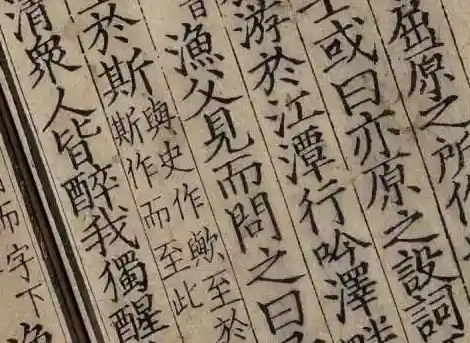 屈原之所
或曰亦原之設詞
游於江潭行吟澤畔
漁父見而問之曰
於斯
與史作歟至於
斯作而至此
清衆人皆醉我獨醒
而字下